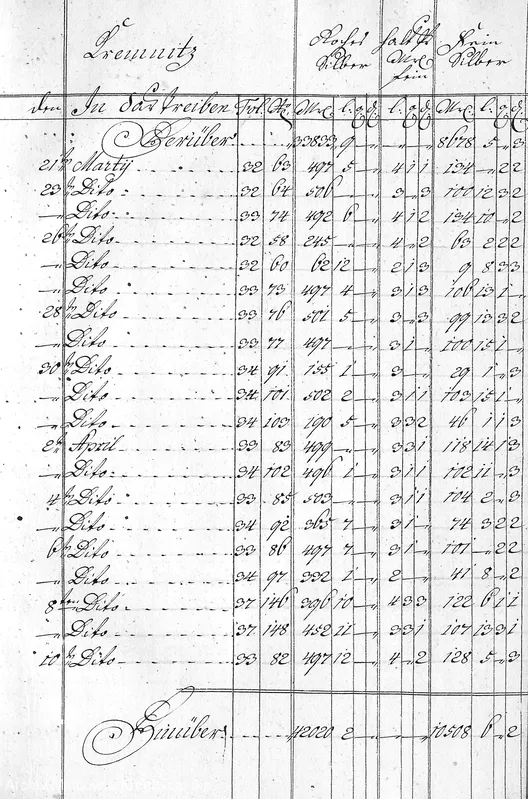 Cremnitz
Roches Silber halt Mr. fein Fein Silber
den In Saÿtreiben Fol. No. Mr. l. q. d. l. q. d. Mr. l. q. d.
Herüber 33833 9 — „ — — „ 8678 5 — 3
21 ten Martÿ 32 63 497 5 — „ 4 1 1 134 — 2 2
23 ten Dito 32 64 506 — — „ 3 — 3 100 12 3 2
— Dito 33 74 492 6 — „ 4 1 2 134 10 — 2
26 ten Dito 32 58 245 — — „ 4 — 2 63 2 2 2
— Dito 32 60 62 12 — „ 2 1 3 9 8 3 3
— Dito 33 73 497 4 — „ 3 1 3 106 13 1 „
28 ten Dito 33 76 501 5 — „ 3 — 3 99 13 3 2
— Dito 33 77 497 — — „ 3 1 „ 100 15 1 „
30 ten Dito 34 91 155 1 — „ 3 — „ 29 1 — 3
— Dito 34 101 502 2 — „ 3 1 1 103 15 1 „
— Dito 34 103 190 5 — „ 3 3 2 46 1 1 3
2 ten April 33 83 499 — — „ 3 3 1 118 14 1 3
— Dito 34 102 496 1 — „ 3 1 1 102 11 — 3
4 ten Dito 33 85 503 — — „ 3 1 1 104 2 — 3
— Dito 34 92 365 7 — „ 3 1 „ 74 3 2 2
6 ten Dito 33 86 497 7 — „ 3 1 „ 101 — 2 2
— Dito 34 97 332 1 — „ 2 — „ 41 8 — 2
8 ten Dito 37 146 396 10 — „ 4 3 3 122 6 1 1
— Dito 37 148 452 11 — „ 3 3 1 107 13 3 1
10 ten Dito 33 82 497 12 — „ 4 — 2 128 5 — 3
Hinüber 42020 2 — „ — — „ 10508 6 — 2